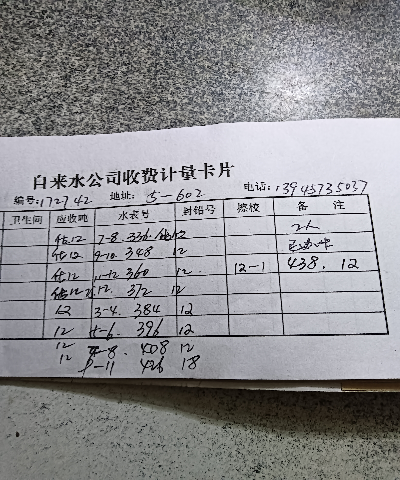 自来水公司收费计量卡片
编号:172742 地址: 5-602 电话:13945735037
卫生间 应收吨 水表号 封铅号 校 备 注
估12 7-8. 336. 12 2人
估12 9-10. 348 12
估12 11-12 360 12 12-1 438. 12
估12 12. 372 12
12 3-4. 384 12
12 5-6. 396 12
12 7-8. 408 12
12 9-11 426 18